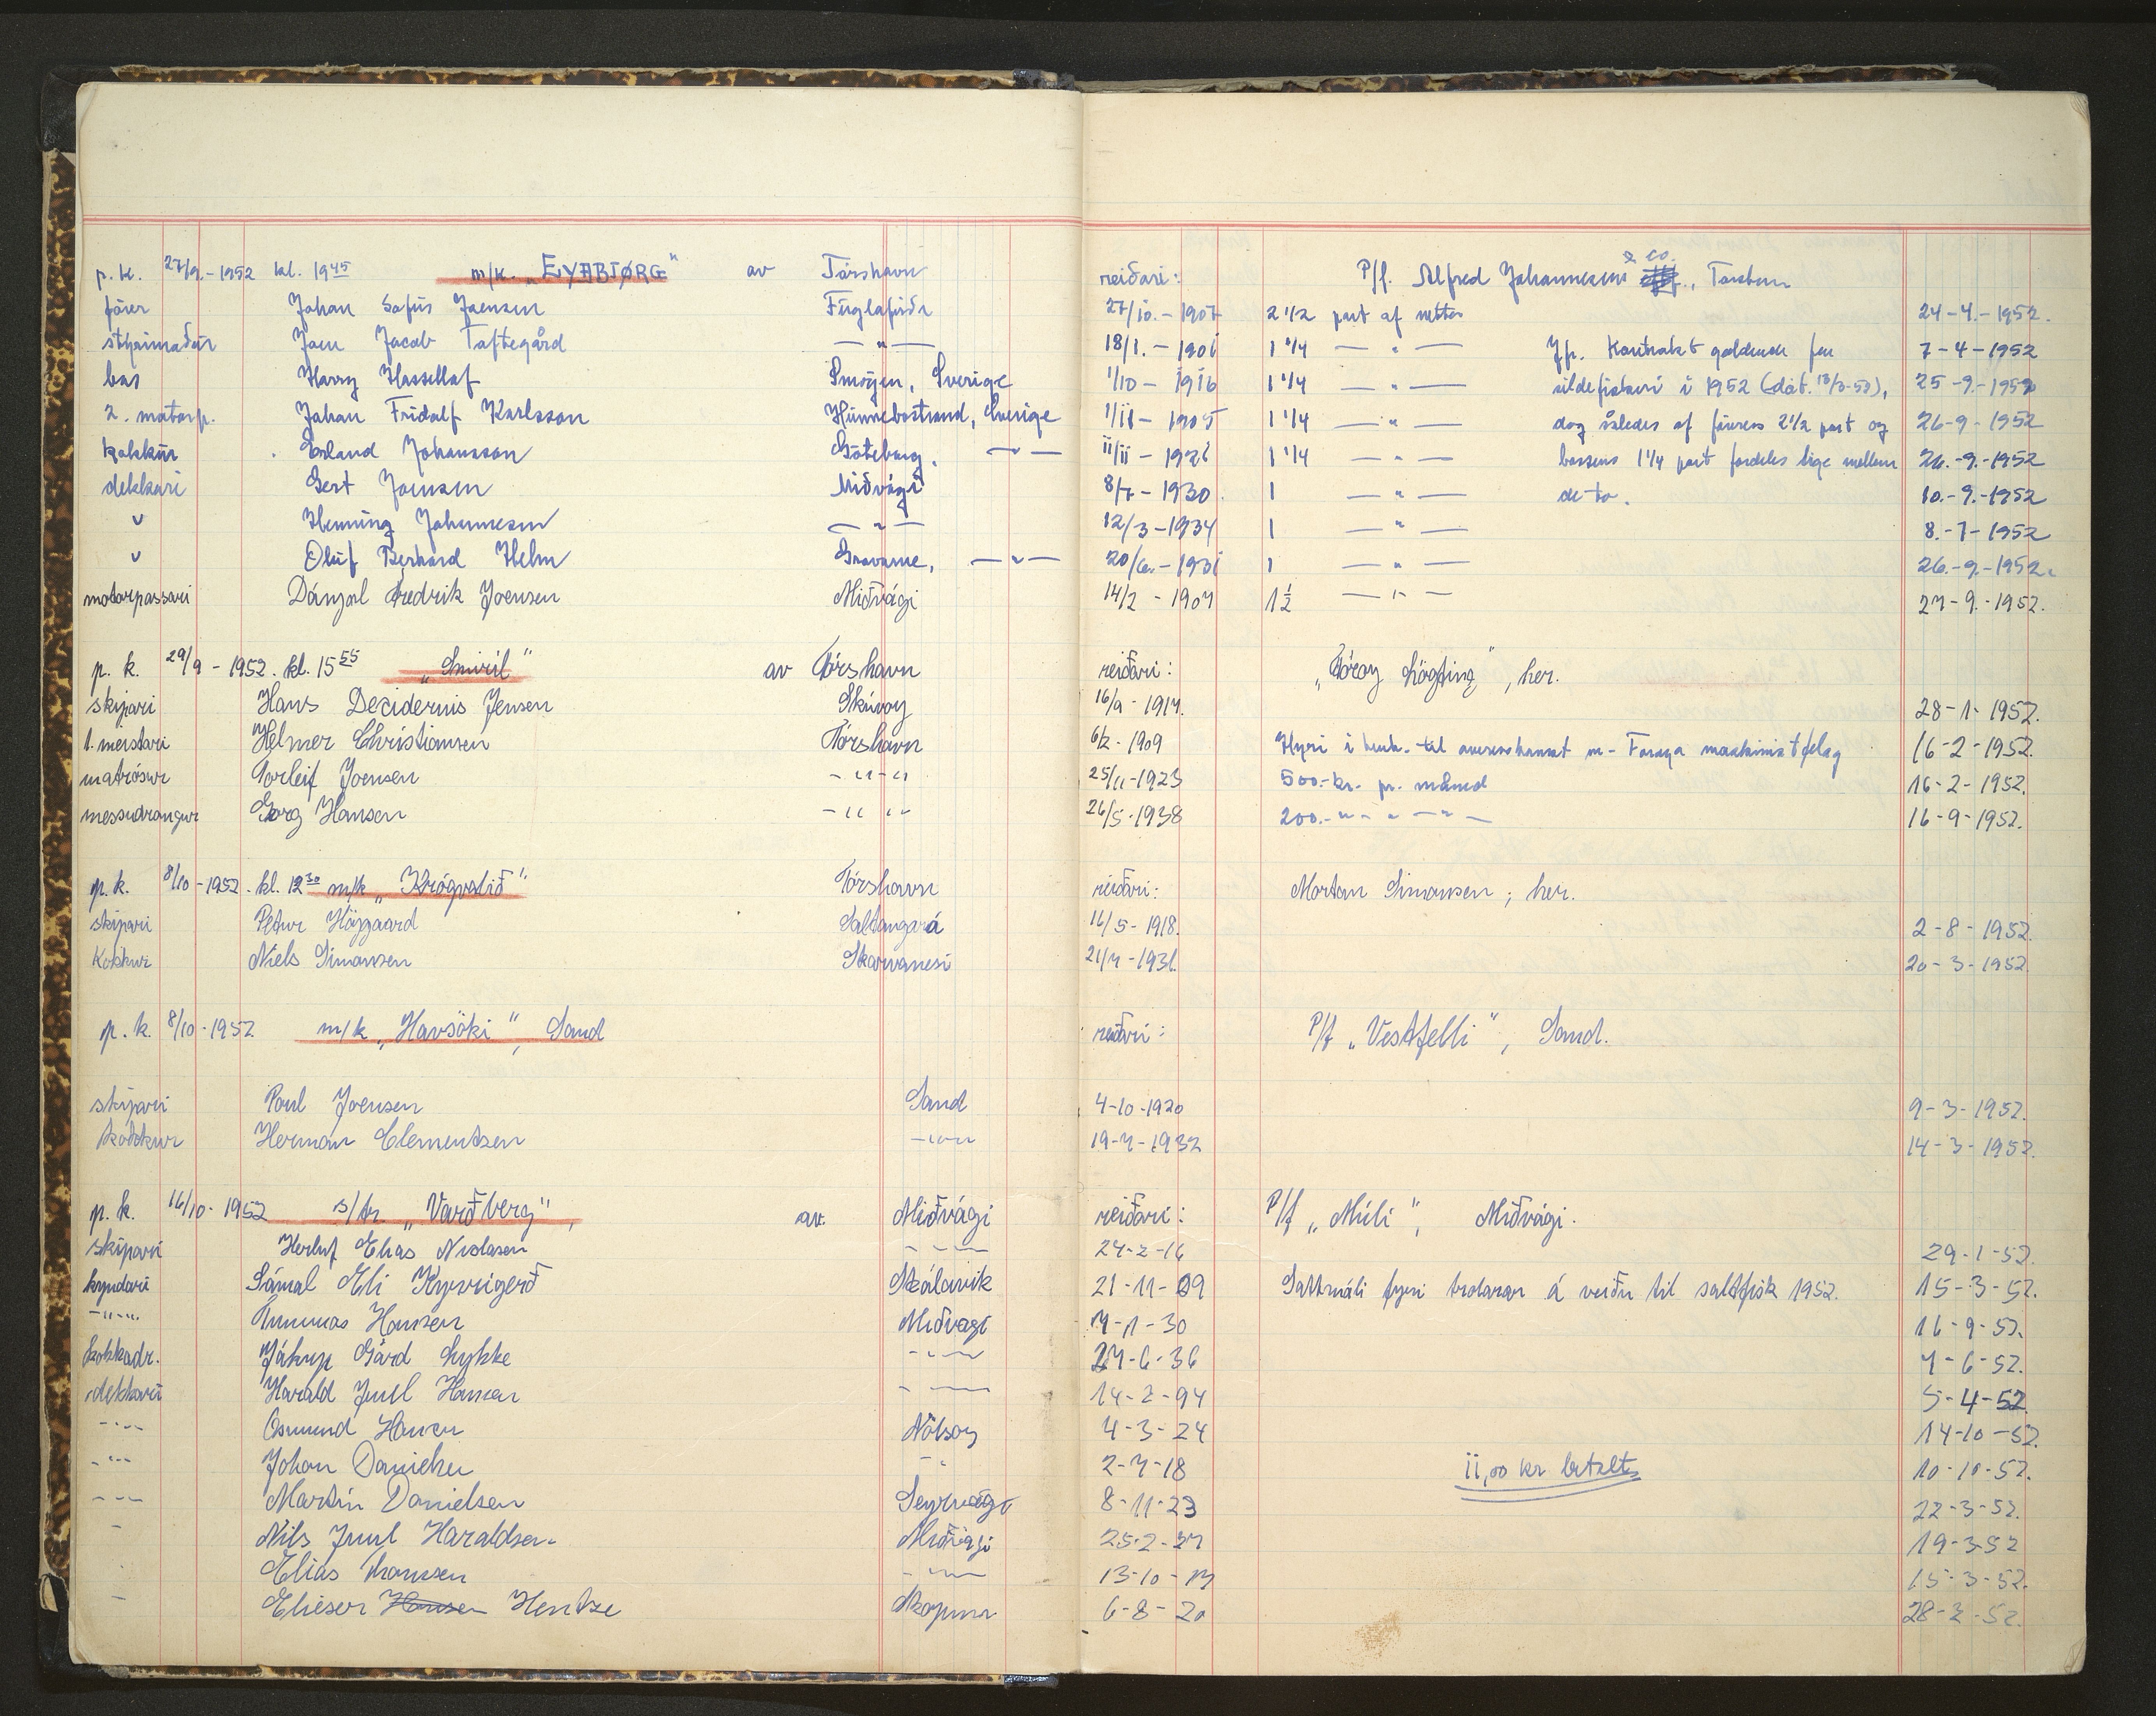 p. k. 27/9.-1952 kl. 19 45 m/k. „EYABJØRG“ av Tórshavn reiðari: P/f. Alfred Johannesen & co., Tórshavn
fører Johan Sofus Joensen Fuglafirði 27/10.-1907 2 1/2 part af netto 24-4.-1952.
stýrimaður Joen Jacob Toftegård — " — 18/1.-1901 1 1/4 — " — Jfr. Kontrakt gældende for 7-4-1952
bas Harry Hassellöf Smögen, Sverige 1/10-1916 1 1/4 — " — sildefiskeri i 1952 (dat. 25-9.-1952
2. motorp. Johan Fridolf Karlsson Hunnebostrand, Sverige 1/11-1905 1 1/4 — " — dog således af førerens 2 1/2 part og 26-9-1952
kokkur Erland Johansson Göteborg, — " — 11/11-1926 1 1/4 — " — bassens 1 1/4 part fordeles lige mellem 26.-9.-1952
dekkari Gert Joensen Miðvági 8/7-1930. 1 — " — de to. 10.-9.-1952
" Henning Johannesen — " — 12/3-1934 1 — " — 8.-7-1952
" Oluf Berhard Helm Gravarne, — " — 20/6.-1931 1 — " — 26.-9.-1952.
motorpassari Dánjal Fredrik Joensen Miðvági 14/2-1907 1 1/2 — " — 27-9.-1952.
p. k. 29/9-1952. kl. 15 55 „Smiril“ av Tórshavn reiðari: „Föroy Lögting“, her.
skipari Hans Deciderius Jensen Skúvoy 16/9-1917. 28-1-1952.
1. meistari Helmer Christiansen Tórshavn 6/2-1909 Hyri i henh. til overenskomst m- Føroya maskinistfelag 16-2-1952.
matrósur Torleif Joensen - " - " 25/11-1923 500.- kr. pr. måned 16-2-1952.
messudrongur Georg Hansen - " " 26/5-1938 200.- " - " - " - 16-9-1952.
p. k. 8/10-1952. kl. 12 30 m/k „Krógvalið“ Tórshavn reiðari: Mortan Simonsen; her.
skipari Petur Højgaard Saltangará 16/5-1918. 2-8-1952.
Kokkur Niels Simonsen Skarvanesi 21/7-1931. 20-3-1952.
p. k. 8/10-1952 m/k „Havsøki“, Sand reiðari: P/f „Vestfelli“, Sand.
skipari Poul Joensen Sand 4-10-1920 9-3-1952.
kokkur Herman Clementsen - " - 19-7-1932 14-3-1952.
p. k. 16/10-1952 s/tr. „Varðberg“, av Miðvági reiðari: P/f „Múli“, Miðvági.
skipari Herluf Elias Niclasen - " - 24-2-16 29-1-52.
kyndari Sámal Eli Kyvrigerð Skálavik 21-11-09 Sáttmáli fyri trolarar á veiðu til saltfisk 1952. 15-3-52.
- " - Tummas Hansen Miðvági 7-1-30 16-9-52.
kokkadr. Jákup Gárd Lykke - " - 27-6-36 7-6-52.
dekkari Harald Juul Hansen - " - 14-2-94 5-4-52.
- " - Osmund Hansen Nólsoy 4-3-24 14-10-52.
- " - Johan Danielsen - " 2-7-18 11,00 kr betalt 10-10-52.
- " - Martin Danielsen Sørvági 8-11-23 22-3-52.
- Nils Juul Haraldsen Miðvági 25-2-27 19-3-52
Elias Thomsen - " - 13-10-17 15-3-52.
- Elieser Hansen Hentze Skopun 6-8-20 28-2-52.